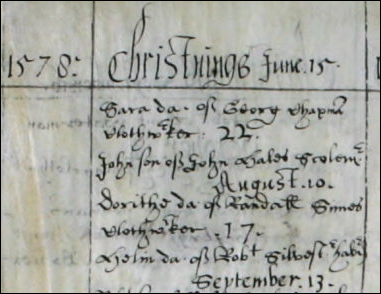 1578: Christnings June .15.
Sara da. of Georg Chapmā
Clothwrker. 22.
John son of John Hales Scolemr
August .10.
Dorithe da of Randall Simes
Clothwrker .17.
Helin da. of Robt Silvestr habr
September .13.